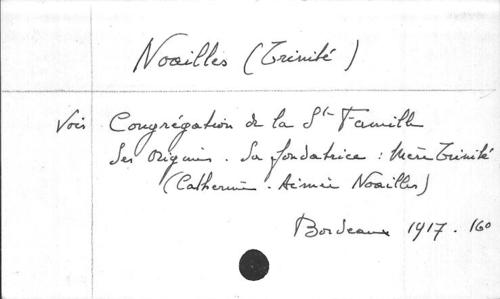 Noailles (Trinité)
Vois Congrégation de la Ste Famille
Ses Origines. Sa fondatrice : Mère Trinité
(Catherine-Aimée Noailles)
Bordeaux 1917. 16o